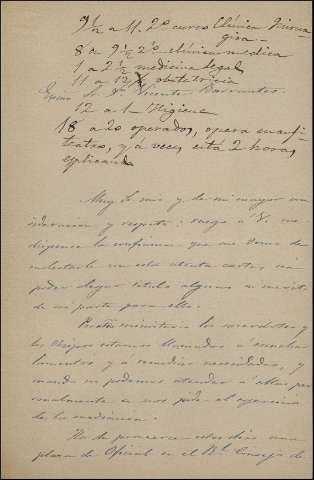 9½ a 11. 2º curso Clínica Quirur-
gica—
8 a 9½ 2º clínica medica
1 a 2½ medicina legal
11 a 12 obstetricia
Excmo. S. Dr. Vicente Barrantes
12 a 1— Higiene
18 a 20 operados, opera en anfi-
teatro, y á veces está 2 horas,
esplicando
Muy Sr. mio y de mi mayor con-
sideracion y respeto: ruego a V. me
dispense la confianza que me tomo de
molestarle con esta atenta carta, sin
poder alegar titulo alguno ni merito
de mi parte para ello.
Por ministerio los sacerdotes y
los Obispos estamos llamados á escuchar
lamentos y á remediar necesidades, y
cuando no podemos atender á ellas per-
sonalmente se nos pide el ejercicio
de la mediacion.
Ha de proveerse estos dias una
plaza de Oficial en el Rl. Consejo de